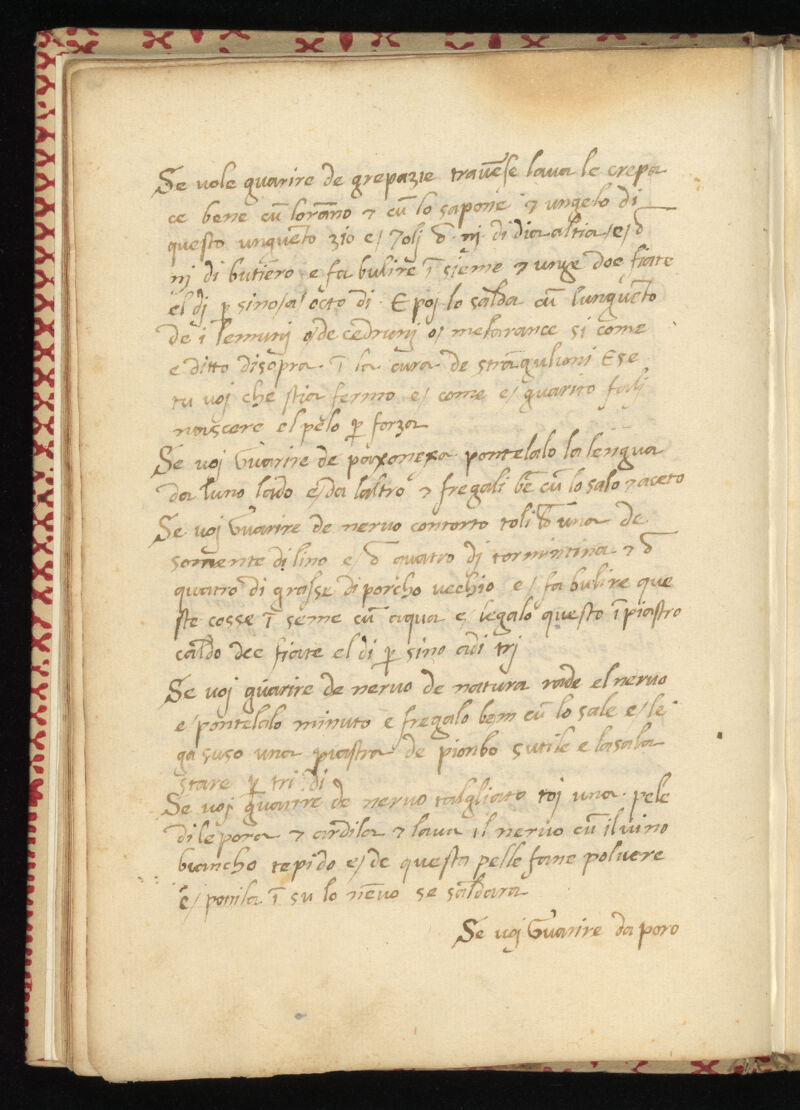 Se vole guarire de grepazie trauēse laua le crepa
ce bene cū lorāno & cū lo sapone & ungelo di
questo unguēto zio e/ Tolj ō ɪɪj di dia altia /e/ ō
ɪɪj di butiero e fa bulire ī sieme & unge doe fiate
el dj p̄ sino /a/ octo di. E poj lo salda cū lunguēto
de i lemunj o/ de cedrunj o/ melarance si come
e ditto disopra. ī la cura de strāgulioni E se
tu voj che stia fermo e/ come e/ guarito falj
nascere el pelo p̄ forza
Se voj Guarire de paxonexa pontelalo la lengua
da luno lado e/ da laltro & fregali bē cū lo salo & aceto
Se voj Guarire de neruo contorto toli ō una de
somente di lino e/ ō quatro di tormintina & ō
quatro di grasse di porcho vechio e/ fa bulire que
ste cosse ī seme cū aqua e legalo questo ī piastro
caldo dee fiate el di p̄ sino adi trj
Se voj guarire de neruo de natura rade el neruo
e/ pontelalo minuto e fregalo bem cū lo sale e/ le
ga suso una piastra de pionbo sutile e lasala
stare p̄ tri di
Se voj guarire de neruo talgliato toj una pele
di lepora & ardila & laua il neruo cū il uino
biancho tepido e/ de questa pelle fane poluere
e/ ponila ī su lo nēuo se saldara
Se voj Guarire da poro